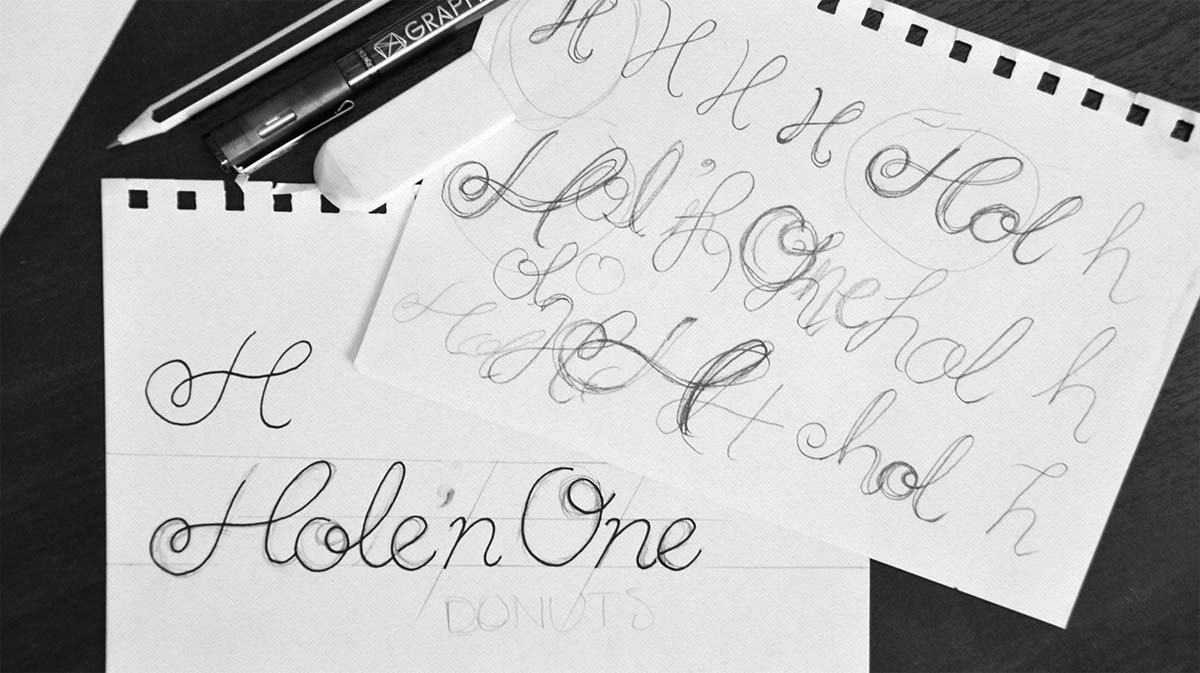 GRAPH
H H H H Hol h
Hol'n One hol h
H H chol h
H
Hole'n One
DONUTS